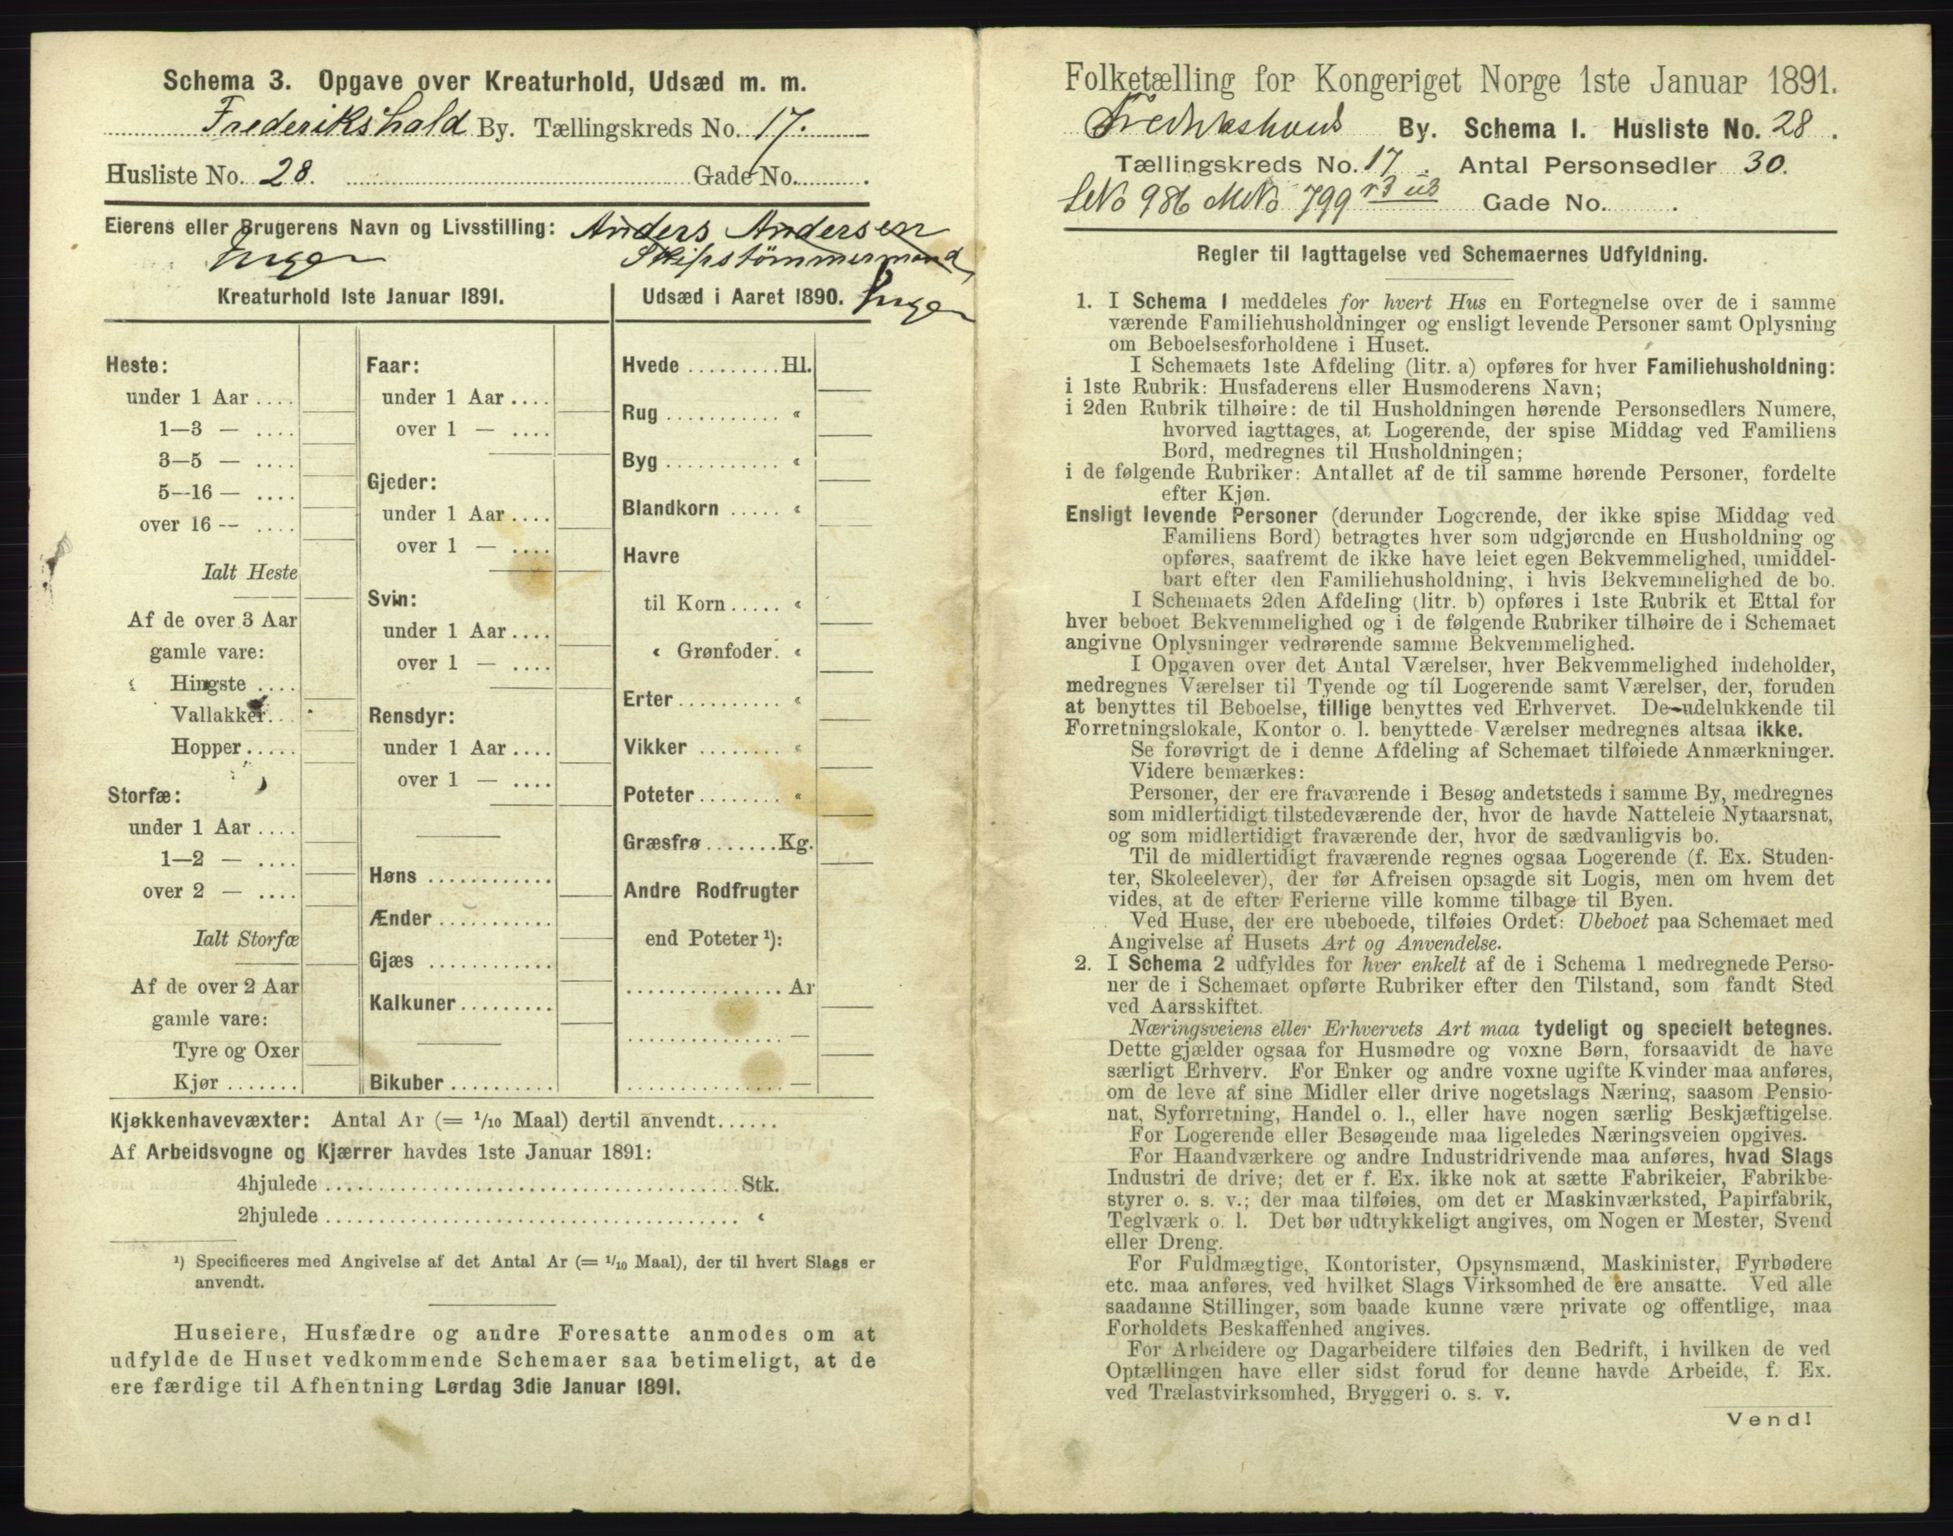 Schema 3. Opgave over Kreaturhold, Udsæd m. m.
Frederikshald By. Tællingskreds No. 17.
Husliste No. 28. Gade No.
Eierens eller Brugerens Navn og Livsstilling: Anders Andersen
Ingen Skibstømmermand
Kreaturhold 1ste Januar 1891. Udsæd i Aaret 1890. Ingen
Heste:
under 1 Aar ....
1—3 — ....
3—5 — ....
5—16 — ....
over 16 — ....
Ialt Heste
Af de over 3 Aar
gamle vare:
Hingste ....
Vallakker...
Hopper.....
Storfæ:
under 1 Aar ....
1—2 — ....
over 2 — ....
Ialt Storfæ
Af de over 2 Aar
gamle vare:
Tyre og Oxer
Kjør .......
Faar:
under 1 Aar ....
over 1 — ....
Gjeder:
under 1 Aar ....
over 1 — ....
Svin:
under 1 Aar ....
over 1 — ....
Rensdyr:
under 1 Aar ....
over 1 — ....
Høns ............
Ænder ...........
Gjæs ............
Kalkuner.........
Bikuber ..........
Hvede .........Hl.
Rug ........... «
Byg ........... «
Blandkorn ..... «
Havre
til Korn ..... «
« Grønfoder. «
Erter .......... «
Vikker ......... «
Poteter ........ «
Græsfrø .......Kg.
Andre Rodfrugter
end Poteter ¹):
............... Ar
............... —
............... —
Kjøkkenhavevæxter: Antal Ar (= 1/10 Maal) dertil anvendt......
Af Arbeidsvogne og Kjærrer havdes 1ste Januar 1891:
4hjulede ........................................ Stk.
2hjulede ........................................ «
¹) Specificeres med Angivelse af det Antal Ar (= 1/10 Maal), der til hvert Slags er
anvendt.
Huseiere, Husfædre og andre Foresatte anmodes om at
udfylde de Huset vedkommende Schemaer saa betimeligt, at de
ere færdige til Afhentning Lørdag 3die Januar 1891.
Folketælling for Kongeriget Norge 1ste Januar 1891.
By. Schema I. Husliste No. 28.
Tællingskreds No. 17. Antal Personsedler 30.
986 799 Gade No.
Regler til Iagttagelse ved Schemaernes Udfyldning.
1. I Schema 1 meddeles for hvert Hus en Fortegnelse over de i samme
værende Familiehusholdninger og ensligt levende Personer samt Oplysning
om Beboelsesforholdene i Huset.
I Schemaets 1ste Afdeling (litr. a) opføres for hver Familiehusholdning:
i 1ste Rubrik: Husfaderens eller Husmoderens Navn;
i 2den Rubrik tilhøire: de til Husholdningen hørende Personsedlers Numere,
hvorved iagttages, at Logerende, der spise Middag ved Familiens
Bord, medregnes til Husholdningen;
i de følgende Rubriker: Antallet af de til samme hørende Personer, fordelte
efter Kjøn.
Ensligt levende Personer (derunder Logerende, der ikke spise Middag ved
Familiens Bord) betragtes hver som udgjørende en Husholdning og
opføres, saafremt de ikke have leiet egen Bekvemmelighed, umiddel-
bart efter den Familiehusholdning, i hvis Bekvemmelighed de bo.
I Schemaets 2den Afdeling (litr. b) opføres i 1ste Rubrik et Ettal for
hver beboet Bekvemmelighed og i de følgende Rubriker tilhøire de i Schemaet
angivne Oplysninger vedrørende samme Bekvemmelighed.
I Opgaven over det Antal Værelser, hver Bekvemmelighed indeholder,
medregnes Værelser til Tyende og til Logerende samt Værelser, der, foruden
at benyttes til Beboelse, tillige benyttes ved Erhvervet. De udelukkende til
Forretningslokale, Kontor o. l. benyttede Værelser medregnes altsaa ikke.
Se forøvrigt de i denne Afdeling af Schemaet tilføiede Anmærkninger.
Videre bemærkes:
Personer, der ere fraværende i Besøg andetsteds i samme By, medregnes
som midlertidigt tilstedeværende der, hvor de havde Natteleie Nytaarsnat,
og som midlertidigt fraværende der, hvor de sædvanligvis bo.
Til de midlertidigt fraværende regnes ogsaa Logerende (f. Ex. Studen-
ter, Skoleelever), der før Afreisen opsagde sit Logis, men om hvem det
vides, at de efter Ferierne ville komme tilbage til Byen.
Ved Huse, der ere ubeboede, tilføies Ordet: Ubeboet paa Schemaet med
Angivelse af Husets Art og Anvendelse.
2. I Schema 2 udfyldes for hver enkelt af de i Schema 1 medregnede Perso-
ner de i Schemaet opførte Rubriker efter den Tilstand, som fandt Sted
ved Aarsskiftet.
Næringsveiens eller Erhvervets Art maa tydeligt og specielt betegnes.
Dette gjælder ogsaa for Husmødre og voxne Børn, forsaavidt de have
særligt Erhverv. For Enker og andre voxne ugifte Kvinder maa anføres,
om de leve af sine Midler eller drive nogetslags Næring, saasom Pensio-
nat, Syforretning, Handel o. l., eller have nogen særlig Beskjæftigelse.
For Logerende eller Besøgende maa ligeledes Næringsveien opgives.
For Haandværkere og andre Industridrivende maa anføres, hvad Slags
Industri de drive; det er f. Ex. ikke nok at sætte Fabrikeier, Fabrikbe-
styrer o. s. v.; der maa tilføies, om det er Maskinværksted, Papirfabrik,
Teglværk o. l. Det bør udtrykkeligt angives, om Nogen er Mester, Svend
eller Dreng.
For Fuldmægtige, Kontorister, Opsynsmænd, Maskinister, Fyrbødere
etc. maa anføres, ved hvilket Slags Virksomhed de ere ansatte. Ved alle
saadanne Stillinger, som baade kunne være private og offentlige, maa
Forholdets Beskaffenhed angives.
For Arbeidere og Dagarbeidere tilføies den Bedrift, i hvilken de ved
Optællingen have eller sidst forud for denne havde Arbeide, f. Ex.
ved Trælastvirksomhed, Bryggeri o. s. v.
Vend!